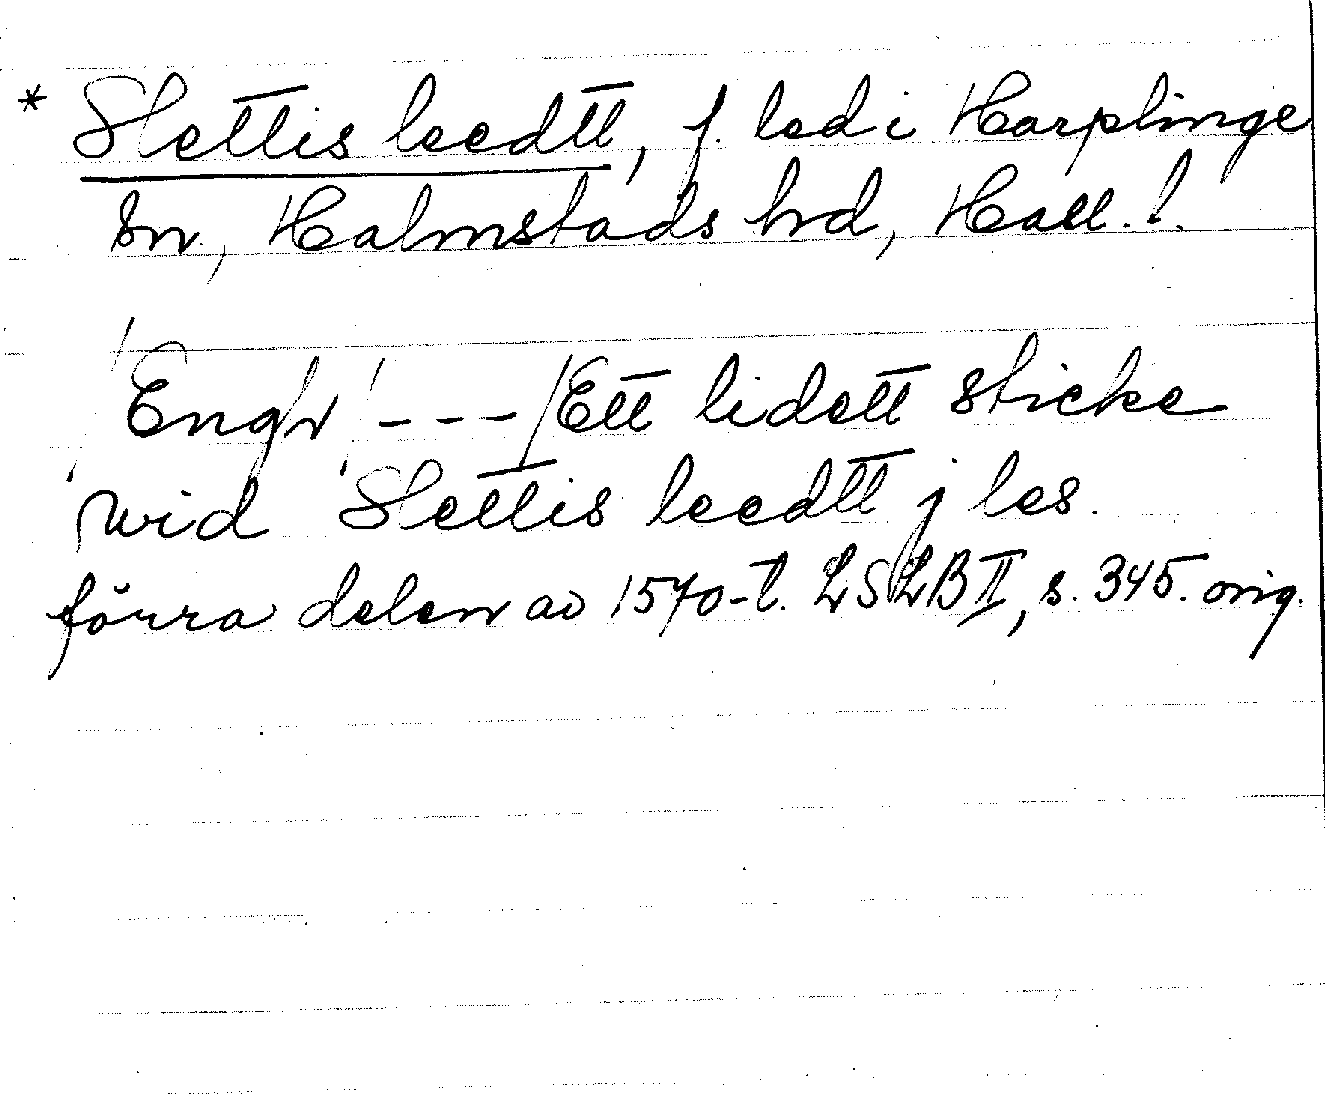 * Slettis leedtt, f. led i Harplinge
sn, Halmstads hd, Hall. l.
Engr /- - -/ Ett lidett sticke
wid Slettis leedtt j les.
förra delen av 1570-t. LSLB II, s. 345. orig.